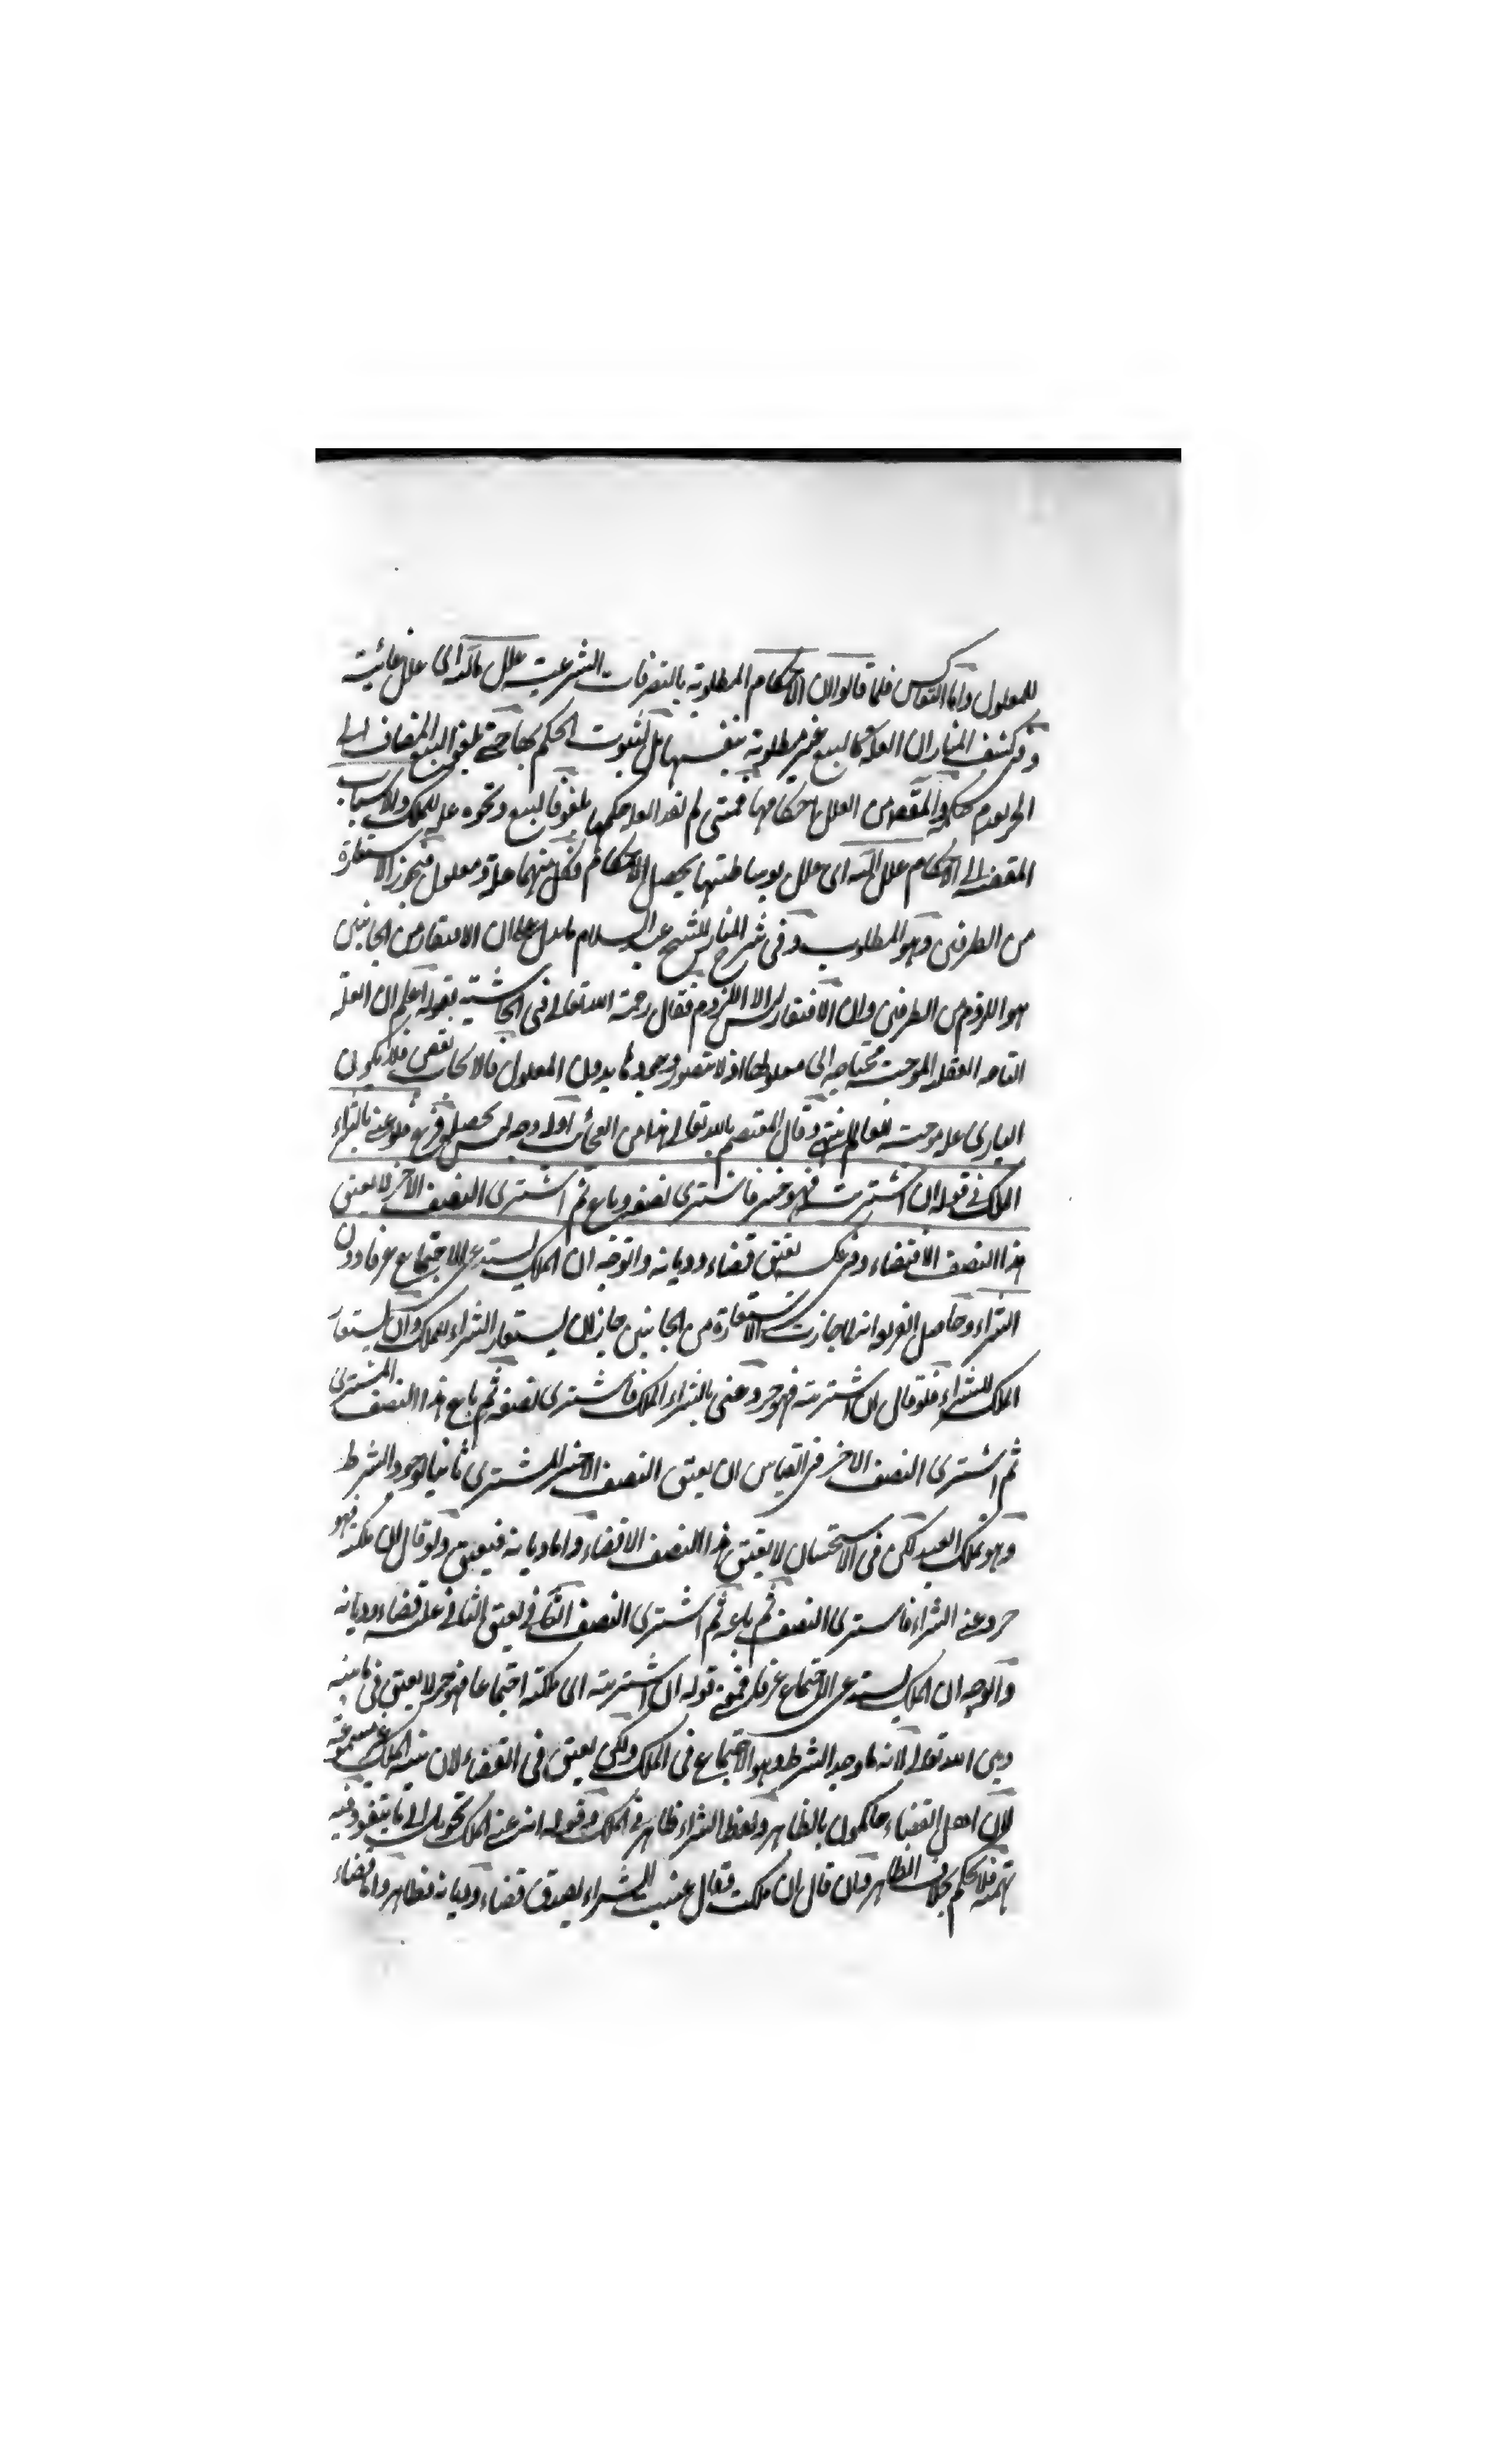 للمعلول واما التعاكس فلما قالوا لان الاحكام المطلوبة بالتصرفات الشرعية علل مالية اى علل غائية
وفى كشف المنار ان العلة كالبيع غير مطلوبة بنفسها بل لثبوت الحكم بها حتى يلغو البيع المضاف الى
الحر لعدم حكمه والمقصد من العلل احكامها فمتى لم تفد العلة حكمها يلغو فالبيع ونحوه علة للملك والاسباب
المفضية الى الاحكام علل آلية اى علل بوساطتها يحصل الاحكام فكل منهما علة ومعلول فيجوز الاستعارة
من الطرفين وهو المطلوب وفى شرح المنار للشيخ عبد السلام ما يدل على ان الافتقار من الجانبين
هو اللزوم من الطرفين وان الافتقار ليس الا اللزوم فقال رحمة الله تعالى فى الحاشية بقوله اعلم ان العلة
التامة العقلية الموجبة محتاجة الى معلولها اذ لا يتصور وجودها بدون المعلول فالايجاب نقص فلا يكون
البارى علة موجبة للعالم انتهى وقال المعتصم بالله تعالى هذا من العجائب اولا وجه ليس يحصل وفرع فلو عنى بالشراء
الملك فى قوله ان اشتريت فهو حر فاشترى نصفه وباع ثم اشترى النصف الآخر لا يعتق
هذا النصف الا قضاء وفى عكسه يعتق قضاء وديانة والوجه ان الملك يستدعى الاجتماع عرفا دون
الشراء وحاصل الفرع انه لما جازت الاستعارة من الجانبين جاز ان يستعار الشراء للملك وان يستعار
الملك للشراء فلو قال ان اشتريته فهو حر وعنى بالشراء الملك فاشترى نصفه ثم باع هذا النصف المشترى
ثم اشترى النصف الآخر فى القياس ان يعتق النصف الاخير للمشترى ثانيا لوجود الشرط
وهو تملك العبد لكن فى الاستحسان لا يعتق هذا النصف الا قضاء واما ديانة فيعتق ولو قال ان ملكته فهو
حر وعنى الشراء فاشترى النصف ثم باعه ثم اشترى النصف الثانى يعتق الثانى عليه قضاء وديانة
والوجه ان الملك يستدعى الاجتماع عرفا فمعنى قوله ان اشتريته اى ملكته اجتماعا فهو حر لا يعتق فى ما بينه
وبين الله تعالى لانه ما وجد الشرط وهو الاجتماع فى الملك ولكن يعتق فى القضاء لان نية الملك غير مسموعة
لان اهل القضاء حاكمون بالظاهر ولفظ الشراء ظاهر فى الملك وقوله انه عنى الملك تحويل الى ما يتفرد فيه
تهمة فلا يحكم بخلاف الظاهر وان قال ان ملكت فقال عنيت الشراء يصدق قضاء وديانة فظاهر واما قضاء